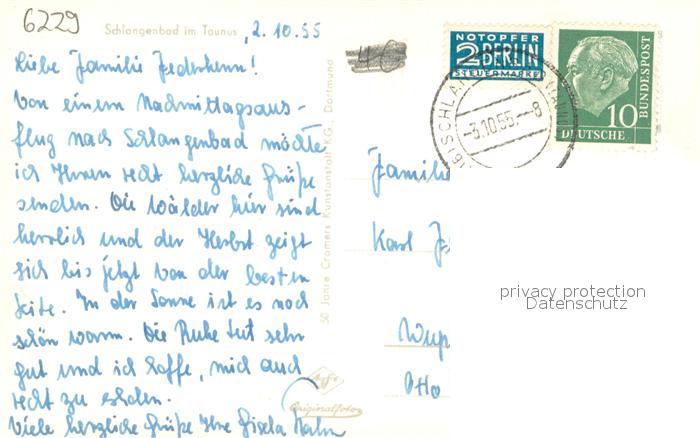 6229
Schlangenbad im Taunus , 2.10.55
Liebe Familie
Von einem Nachmittagsaus-
flug nach Schlangenbad möchte
ich Ihnen recht herzliche Grüße
senden. Die Wälder hier sind
herrlich und der Herbst zeigt
sich bis jetzt von der besten
Seite. In der Sonne ist es noch
schön warm. Die Ruhe tut sehr
gut und ich hoffe, mich auch
recht zu erholen.
Viele herzliche Grüße Ihre Gisela
50 Jahre Cramers Kunstanstalt KG., Dortmund
Originalfoto
NOTOPFER
2 BERLIN
STEUERMARKE
10
DEUTSCHE
BUNDESPOST
(16) SCHLAN
-3.10.55.-8
Familie
Karl
Wup
Otto
privacy protection
Datenschutz